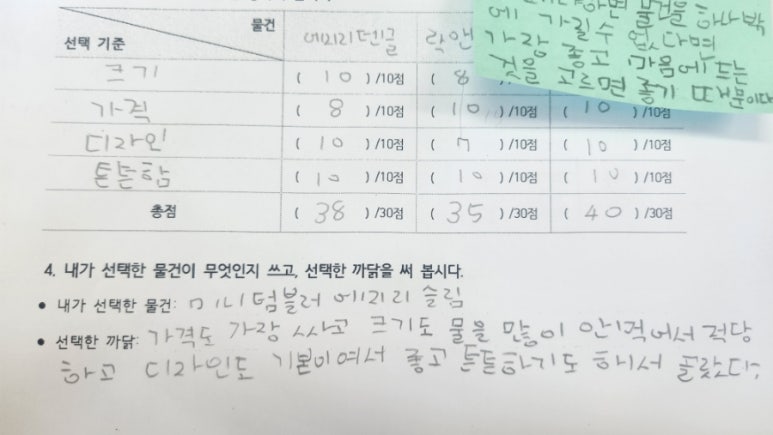 물건
선택 기준
에지리덴글
락앤
크기
( 10 ) /10점
( 8
가격
( 8 ) /10점
( 10 ) /10점
( 10 ) /10점
디자인
( 10 ) /10점
( 7 ) /10점
( 10 ) /10점
튼튼함
( 10 ) /10점
( 10 ) /10점
( 10 ) /10점
총점
( 38 ) /30점
( 35 ) /30점
( 40 ) /30점
물건을 하나밖
에 가질 수 없다면
가장 좋고 마음에 드는
것을 고르면 좋기 때문이다
4. 내가 선택한 물건이 무엇인지 쓰고, 선택한 까닭을 써 봅시다.
• 내가 선택한 물건: 미니텀블러 에지리 슬림
• 선택한 까닭: 가격도 가장 싸고 크기도 물을 많이 안먹어서 적당
하고 디자인도 기본이여서 좋고 튼튼하기도 해서 골랐다.